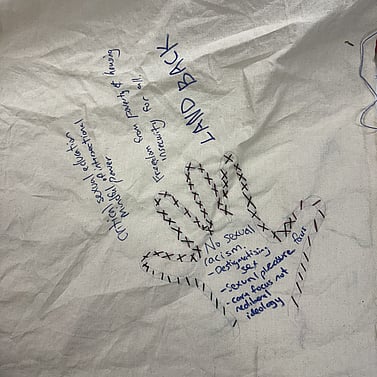 LAND BACK
Freedom from poverty & housing
insecurity for all
Critical sexual education
Mindful of intersectional
Power
No sexual
racism.
- Destigmatising
sex
- sexual pleasure focus
- care focus not
neoliberal
ideology